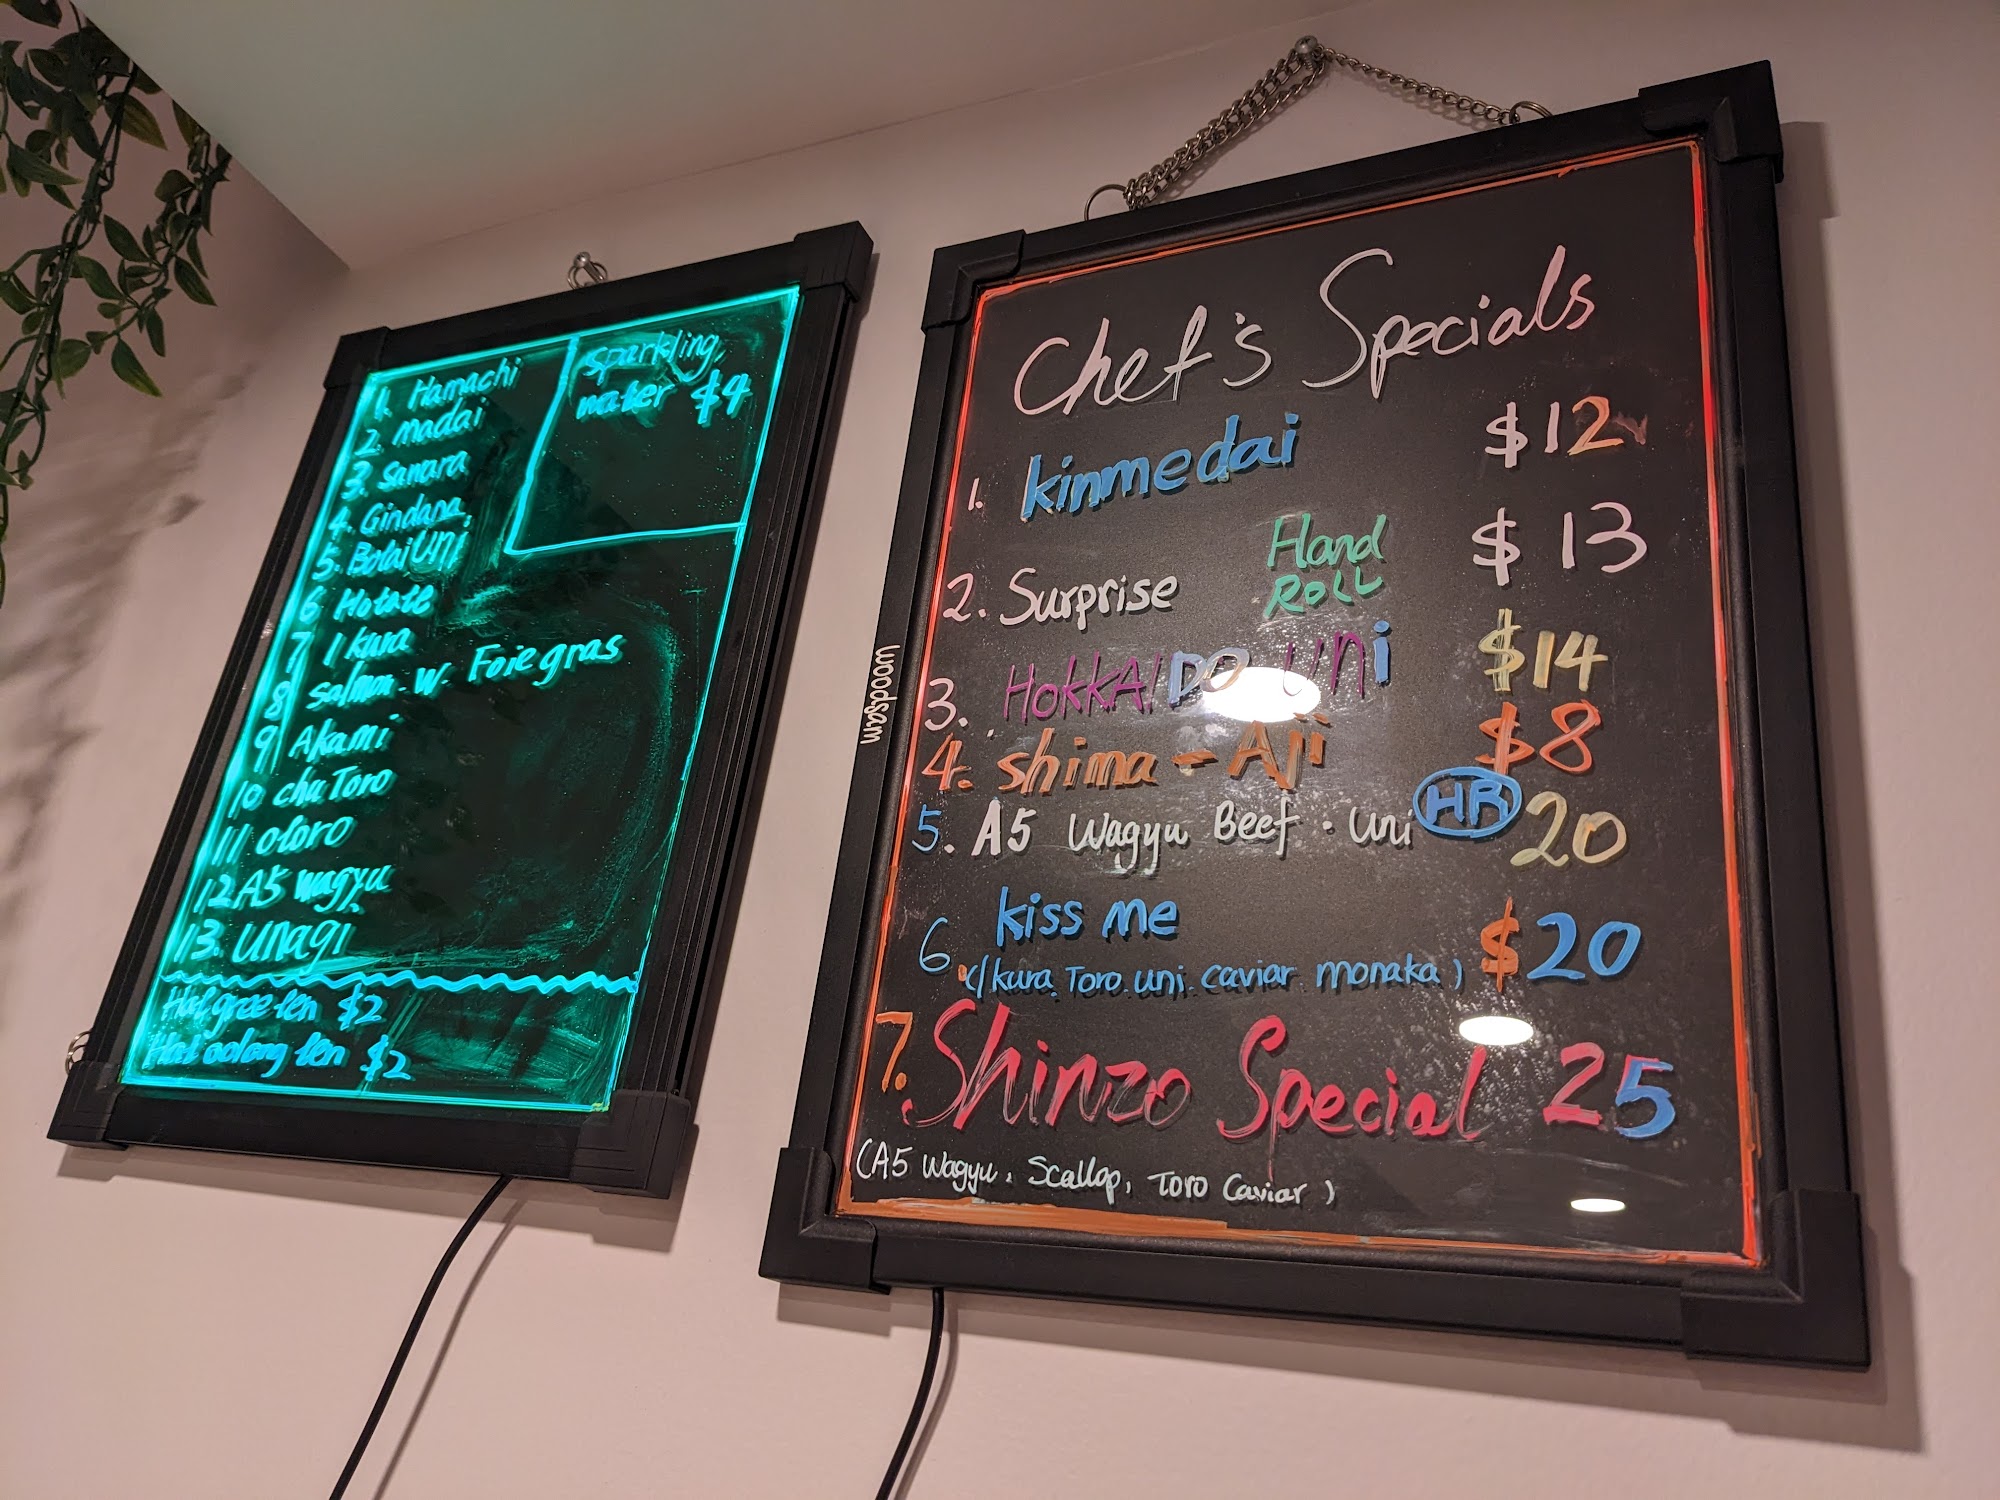 1. Hamachi
2. madai
3. sanara
4. Gindana
5. Bodai UNI
6 Hotate
7 Ikura
8 salmon. W. Foie gras
9 Akami
10 chuToro
11 oloro
12 A5 wagyu
13. unagi
sparkling
water $4
Hot green ten $2
Hot oolong ten $2
woodsam
Chef's Specials
1. kinmedai $12
2. Surprise Hand ROLL $13
3. HOKKAIDO UNi $14
4. shima - Aji $8
5. A5 Wagyu Beef . Uni HR 20
6. kiss me $20
(Ikura. Toro. uni. caviar monaka)
7. Shinzo Special 25
(A5 Wagyu, Scallop, Toro Caviar)